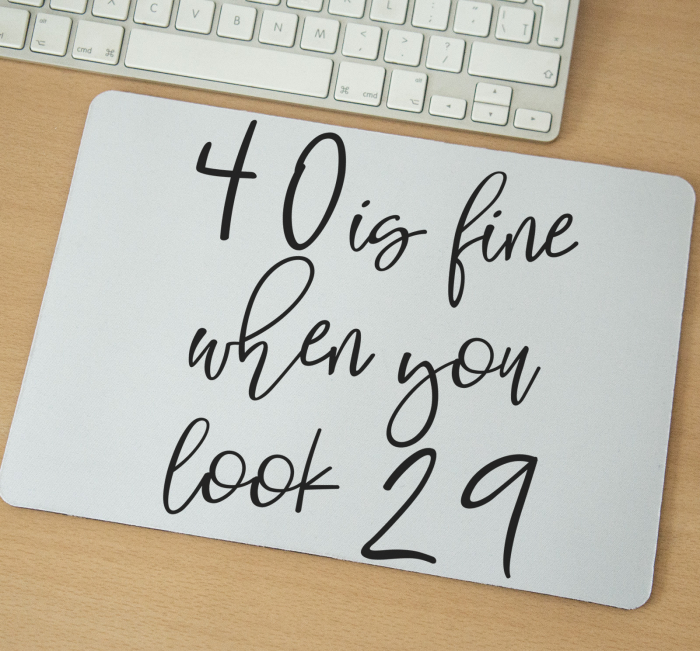 X C V B N M < , > . ? /
cmd ⌘ ⌘ cmd
40 is fine
when you
look 29